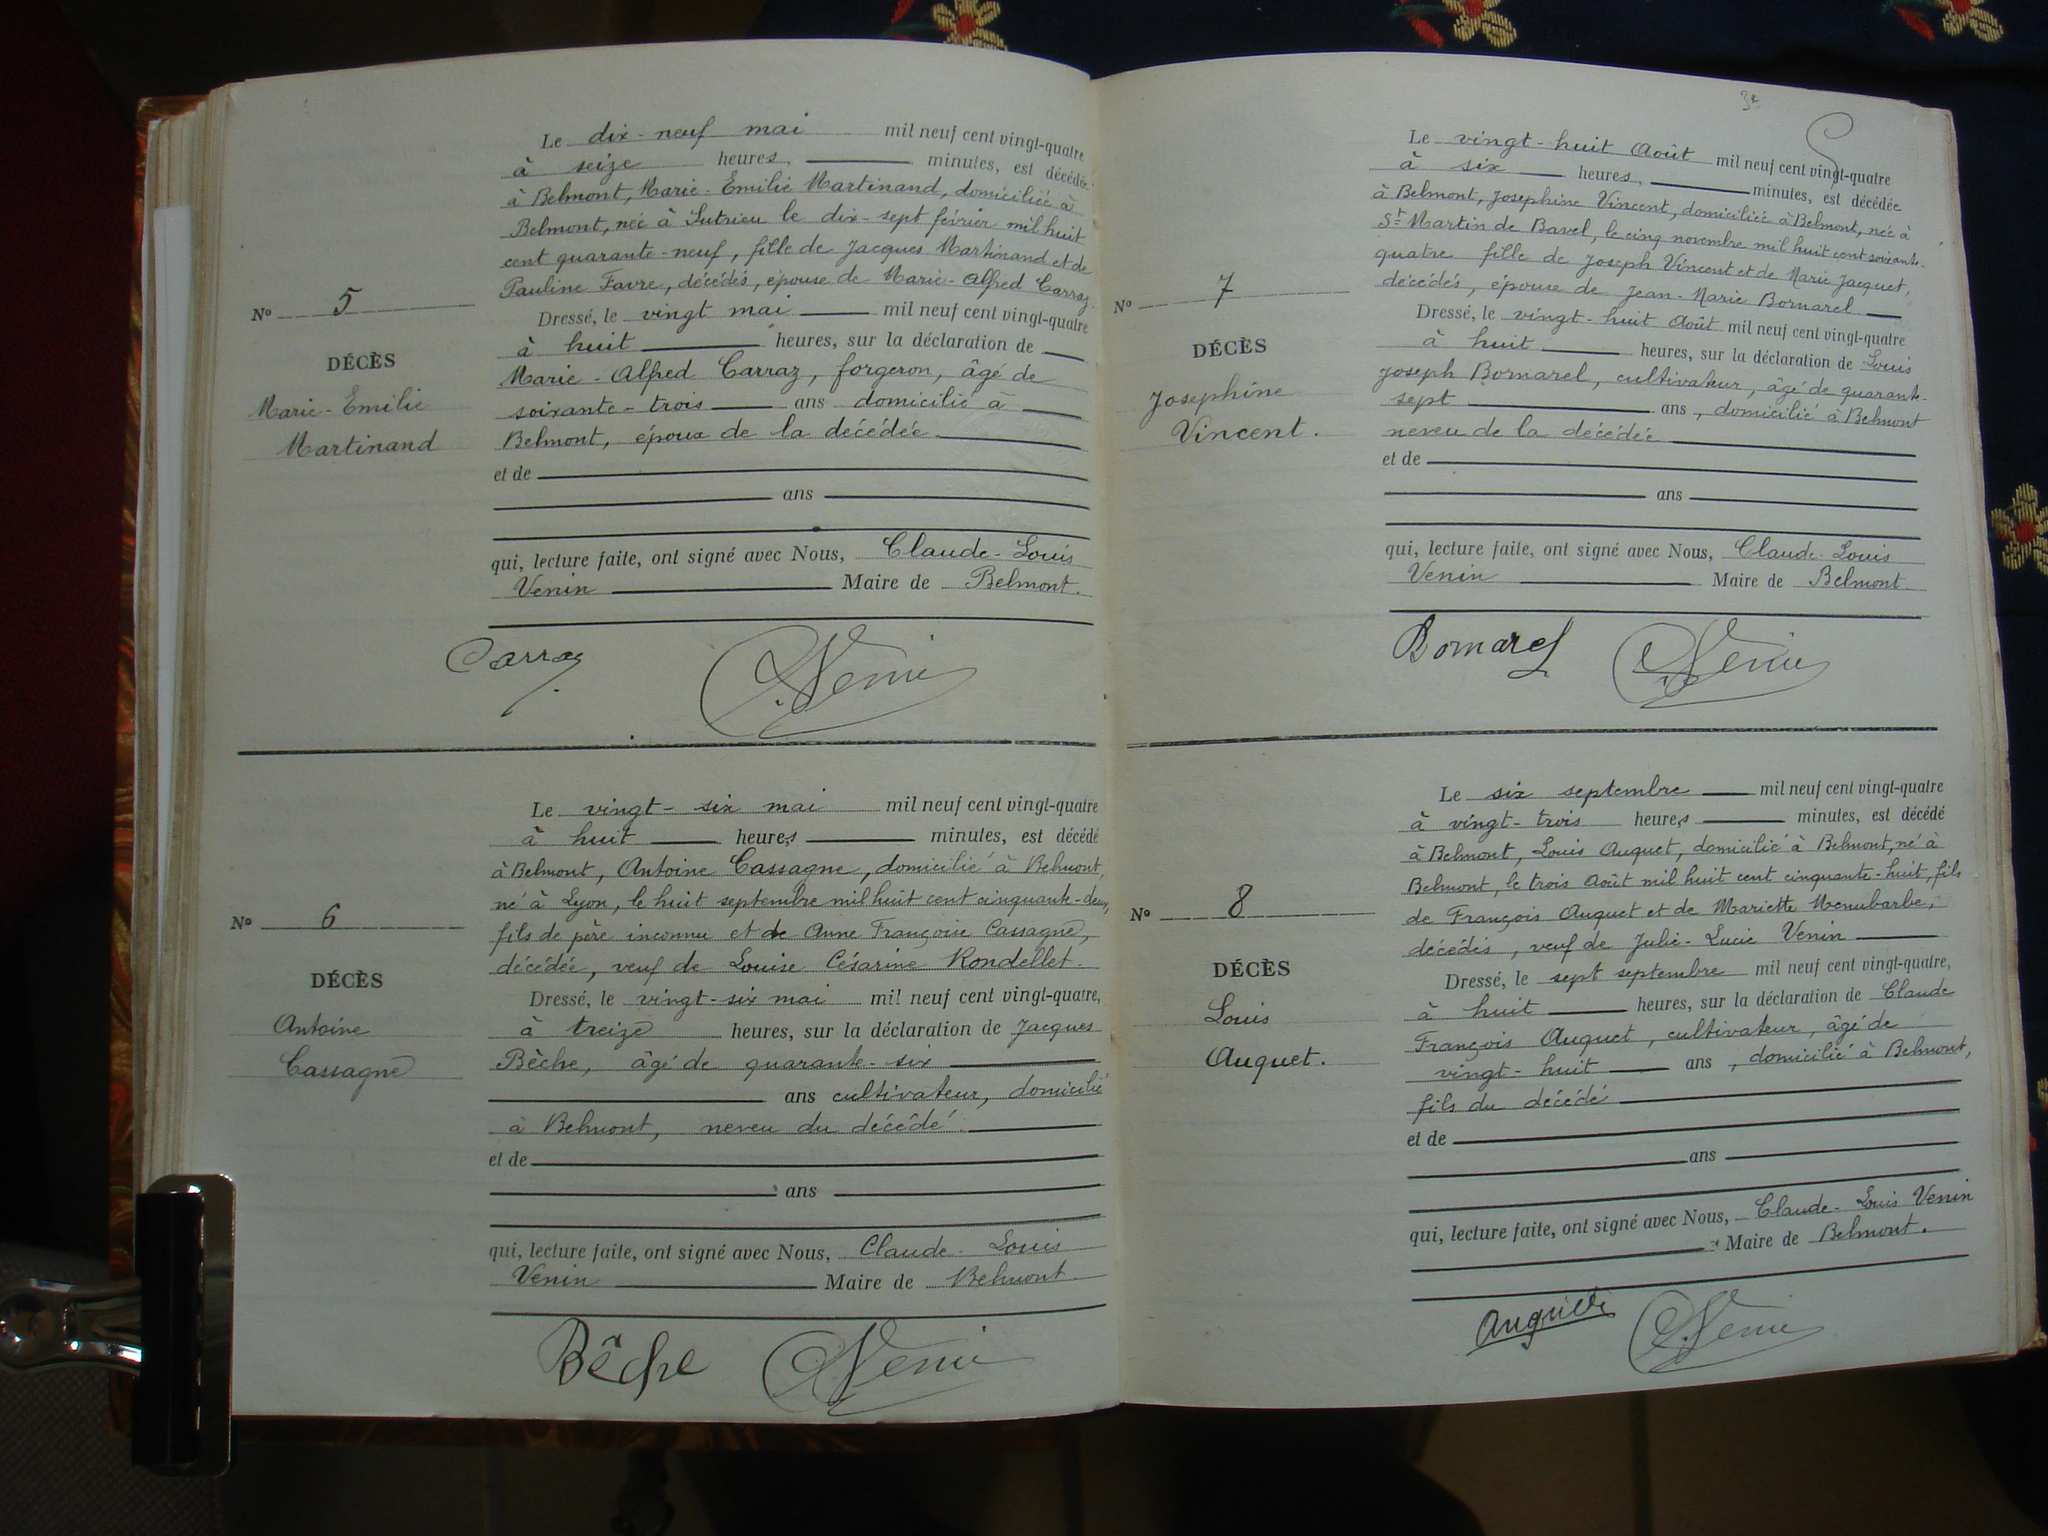 Le dix-neuf mai mil neuf cent vingt-quatre
à seize heures, minutes, est décédée
à Belmont, Marie-Emilie Martinand, domiciliée à
Belmont, née à Sutrieu le dix-sept février mil huit
cent quarante-neuf, fille de Jacques Martinand et de
Pauline Favre, décédés, épouse de Marie-Alfred Carraz.
Nº 5
DÉCÈS
Marie-Emilie
Martinand
Dressé, le vingt mai mil neuf cent vingt-quatre
à huit heures, sur la déclaration de
Marie-Alfred Carraz, forgeron, âgé de
soixante-trois ans domicilié à
Belmont, époux de la décédée
et de
ans
qui, lecture faite, ont signé avec Nous, Claude-Louis
Venin Maire de Belmont.
Carraz
Venin
Le vingt-six mai mil neuf cent vingt-quatre
à huit heures minutes, est décédé
à Belmont, Antoine Cassagne, domicilié à Belmont,
né à Lyon, le huit septembre mil huit cent cinquante-deux,
fils de père inconnu et de Anne Françoise Cassagne,
décédée, veuf de Louise Césarine Rondellet.
Nº 6
DÉCÈS
Antoine
Cassagne
Dressé, le vingt-six mai mil neuf cent vingt-quatre,
à treize heures, sur la déclaration de Jacques
Bêche, âgé de quarante-six
ans cultivateur, domicilié
à Belmont, neveu du décédé.
et de
ans
qui, lecture faite, ont signé avec Nous, Claude-Louis
Venin Maire de Belmont.
Bêche
Venin
Le vingt-huit Août mil neuf cent vingt-quatre
à six heures, minutes, est décédée
à Belmont, Josephine Vincent, domiciliée à Belmont, née à
St Martin de Bavel, le cinq novembre mil huit cent soixante-
quatre fille de Joseph Vincent et de Marie Jacquet,
décédés, épouse de Jean-Marie Bornarel
Nº 7
DÉCÈS
Josephine
Vincent.
Dressé, le vingt-huit Août mil neuf cent vingt-quatre
à huit heures, sur la déclaration de Louis
Joseph Bornarel, cultivateur, âgé de quarante-
sept ans, domicilié à Belmont
neveu de la décédée
et de
ans
qui, lecture faite, ont signé avec Nous, Claude-Louis
Venin Maire de Belmont
Bornarel
Venin
Le six septembre mil neuf cent vingt-quatre
à vingt-trois heures minutes, est décédé
à Belmont, Louis Auquet, domicilié à Belmont, né à
Belmont, le trois Août mil huit cent cinquante-huit, fils
de François Auquet et de Mariette Menubarbe,
décédés, veuf de Julie-Lucie Venin
Nº 8
DÉCÈS
Louis
Auquet.
Dressé, le sept septembre mil neuf cent vingt-quatre,
à huit heures, sur la déclaration de Claude
François Auquet, cultivateur, âgé de
vingt-huit ans, domicilié à Belmont,
fils du décédé
et de
ans
qui, lecture faite, ont signé avec Nous, Claude-Louis Venin
Maire de Belmont.
Venin